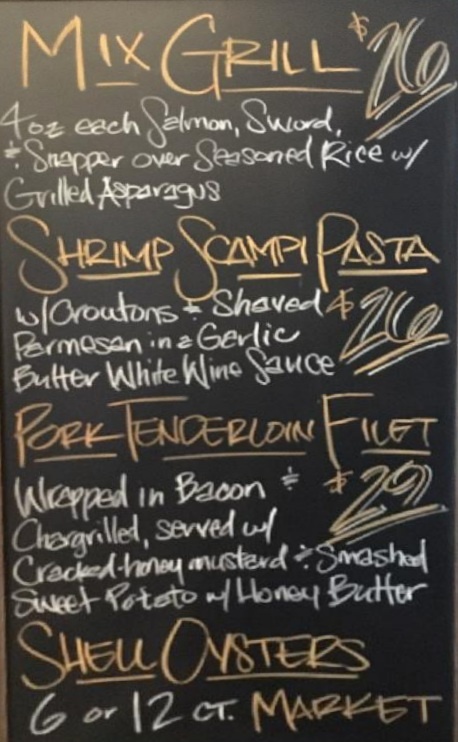 MIX GRILL $26
4oz each Salmon, Sword,
& Snapper over Seasoned Rice w/
Grilled Asparagus
SHRIMP SCAMPI PASTA
w/Croutons & Shaved $26
Parmesan in a Garlic
Butter White Wine Sauce
PORK TENDERLOIN FILET
Wrapped in Bacon & $29
Chargrilled, served w/
Cracked-honey mustard & Smashed
Sweet Potato w/ Honey Butter
SHELL OYSTERS
6 or 12 CT. MARKET